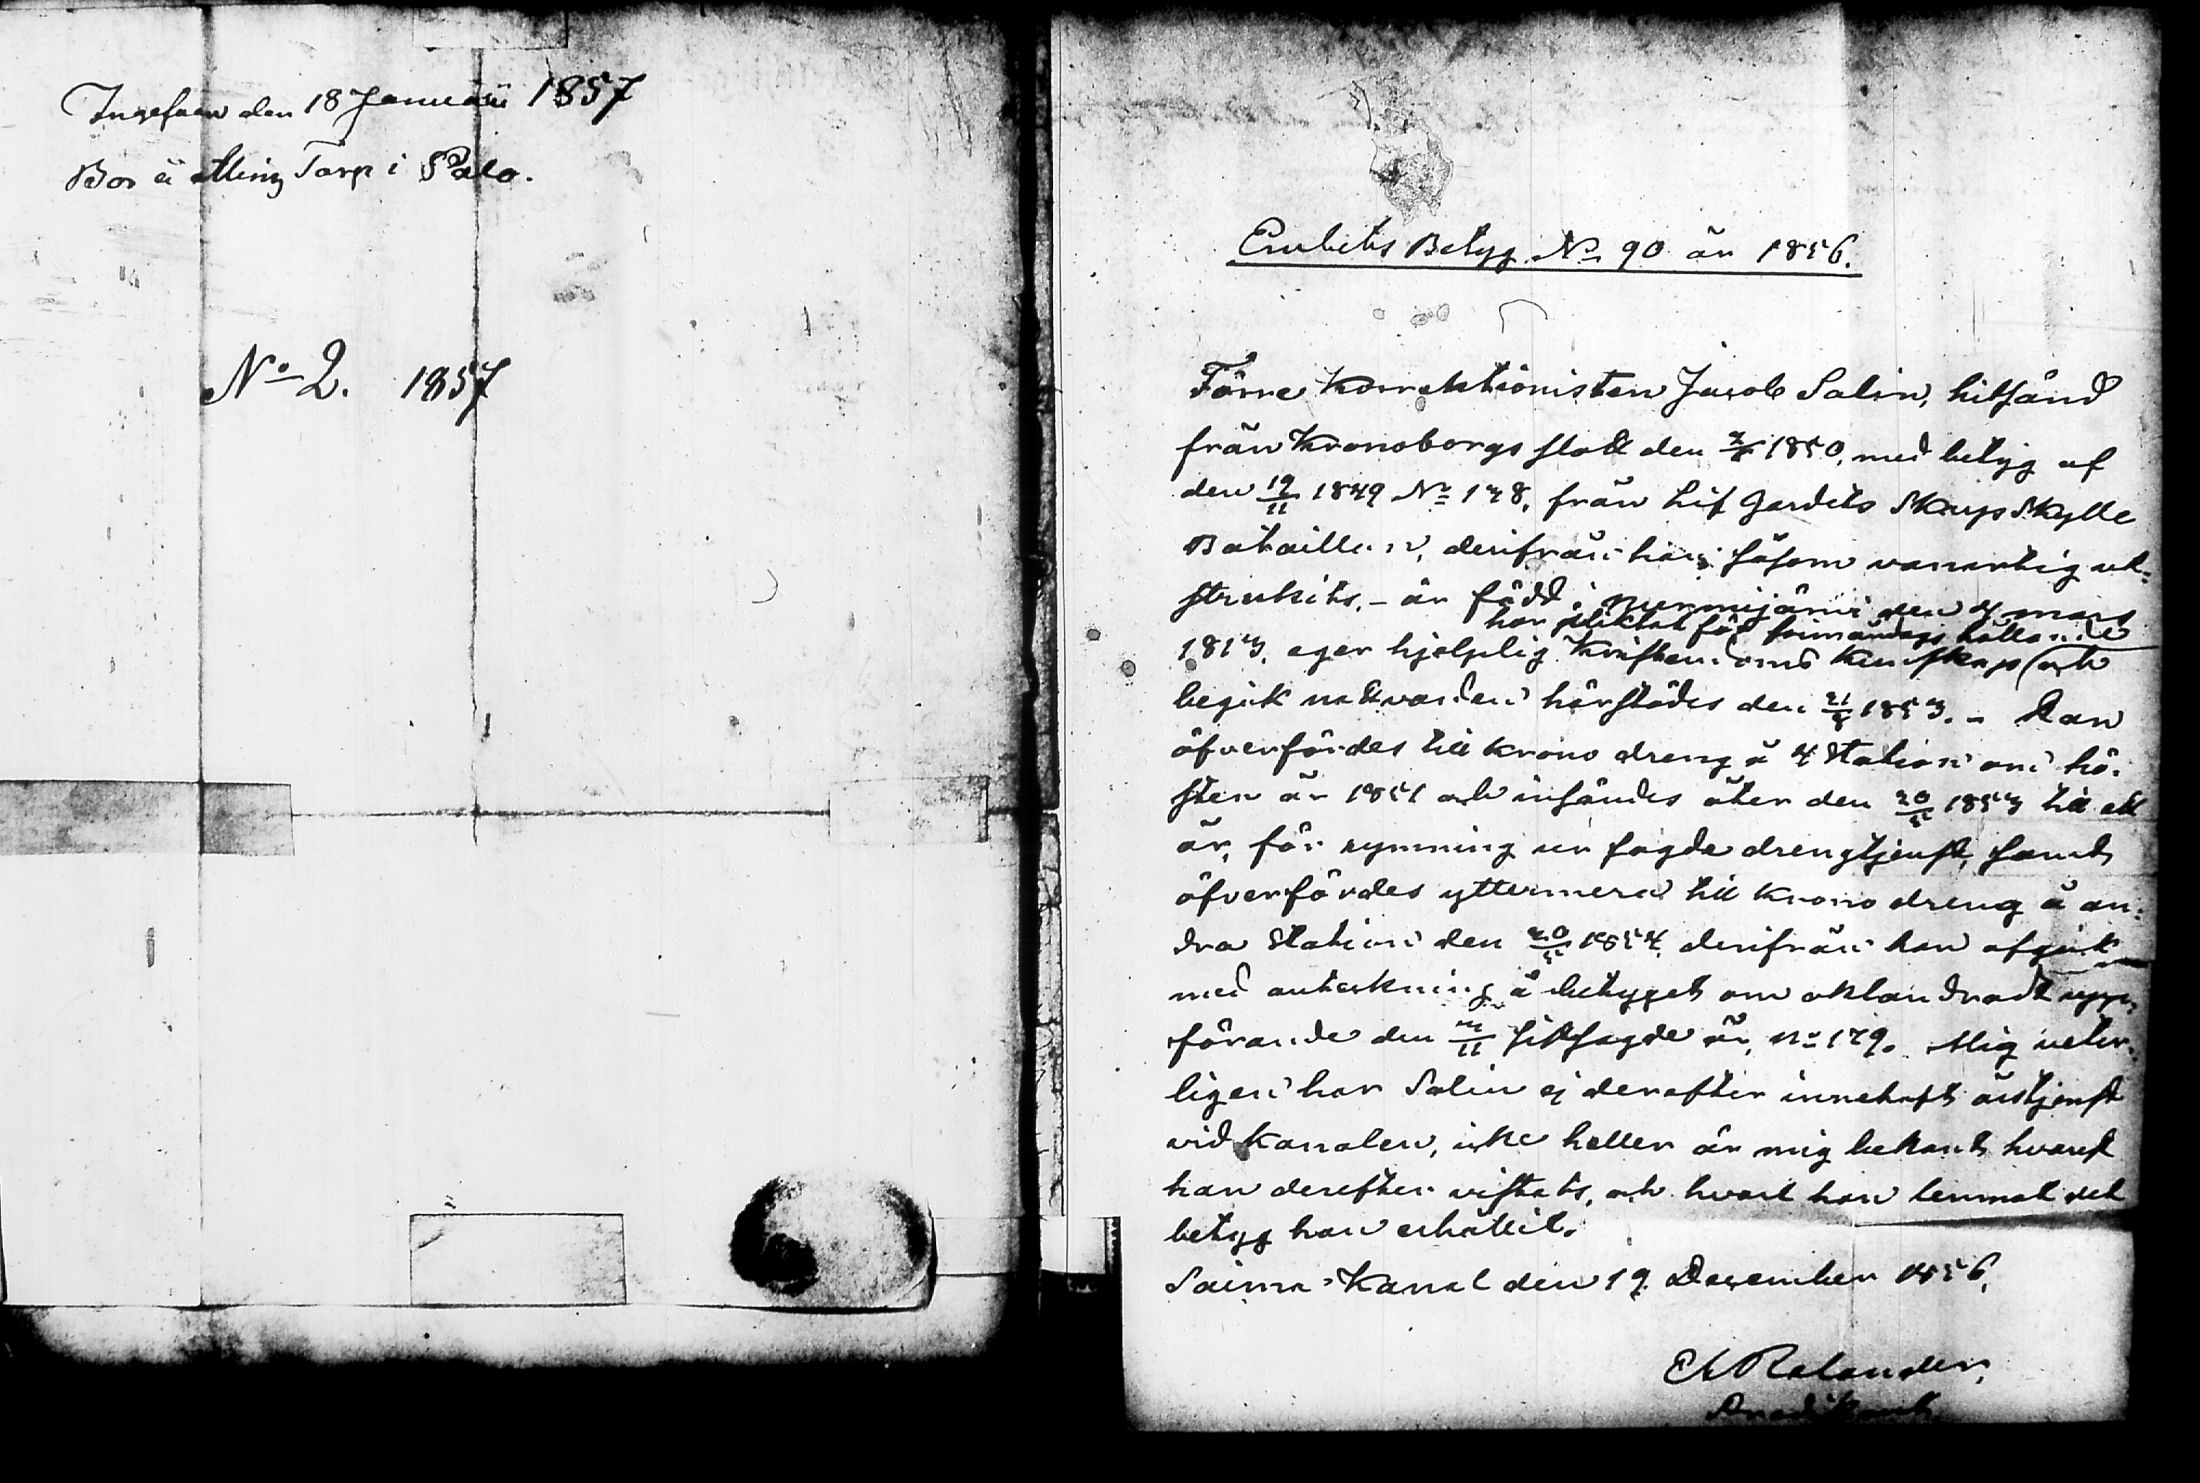 Ingifven den 18 Januarii 1857
Bor å Torp i Palo.
No 2. 1857
Embets Betyg No 90 år 1856.
Förre Korrektionisten Jacob Salin, hitsänd
från Kronoborgs slott den 1850, med betyg af
den 19/11 1849 No 148, från Lif Gardets Skarpskytte
Bataillon, derifrån han såsom vanartig ut-
strukits, - är född i Nurmijärvi den 4 mars
har pliktat för hållande
1813, eger hjelplig Kristendoms kunskap och
begik nattvarden härstädes den 21/8 1853. - Han
öfverfördes till krono dreng å 4 Station om hö-
sten år 1851 och insändes åter den 20/11 1853 till ett
år, för rymning ur sagde drengtjenst, samt
öfverfördes yttermera till krono dreng å an-
dra Station den 20/11 1854, derifrån han afgick
med anteckning å betyget om oklandradt upp-
förande den sistsagde år, No 179. Mig veter-
ligen har Salin ej derefter innehaft årstjenst
vid Kanalen, icke heller är mig bekant hvarest
han derefter vistats, och hvart han lemnat det
betyg han erhållit.
Saima Kanal den 19 December 1856.
Relander,
Predikant